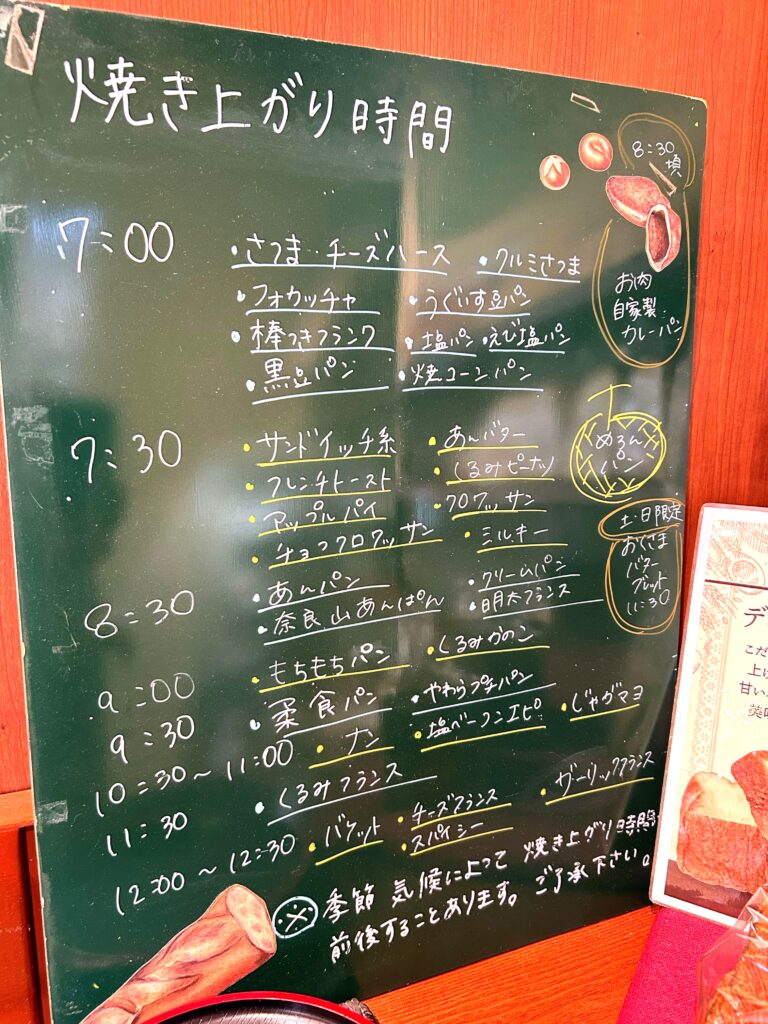 焼き上がり時間
8:30
頃
お肉
自家製
カレーパン
7:00
・さつま・チーズハース ・クルミさつま
・フォカッチャ ・うぐいす豆パン
・棒つきフランク ・塩パン ・えび塩パン
・黒豆パン ・焼コーンパン
めろん
パン
7:30
・サンドイッチ系 ・あんバター
・フレンチトースト ・くるみピーナッツ
・アップルパイ ・クロワッサン
・チョコクロワッサン ・ミルキー
土・日限定
おぐさま
バター
ブレット
11:30
8:30
・あんパン ・クリームパン
・奈良山あんぱん ・明太フランス
9:00
・もちもちパン ・くるみかのん
9:30
・柔食パン ・やわらプチパン
10:30～11:00
・ナン ・塩ベーコンエピ ・じゃがマヨ
11:30
・くるみフランス
12:00～12:30
・バケット ・チーズフランス ・ガーリックフランス
・スパイシー
※季節 気候によって 焼き上がり時間が
前後することあります。ご了承下さい。
デ
こだ
上げ
甘い
美味